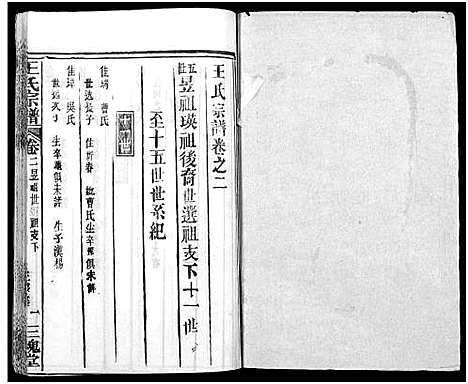 王氏宗譜卷之二
五世昱祖瑛祖後裔世選祖支下十一世
至十五世世系紀
佳璋 曹氏
世選長子 仕新春 娶曹氏生卒葬俱未詳
佳琫 吳氏
世選次子 生卒葬俱未詳 生子漢楊
王氏宗譜
卷二昱瑛世選祖支下
一
三槐堂